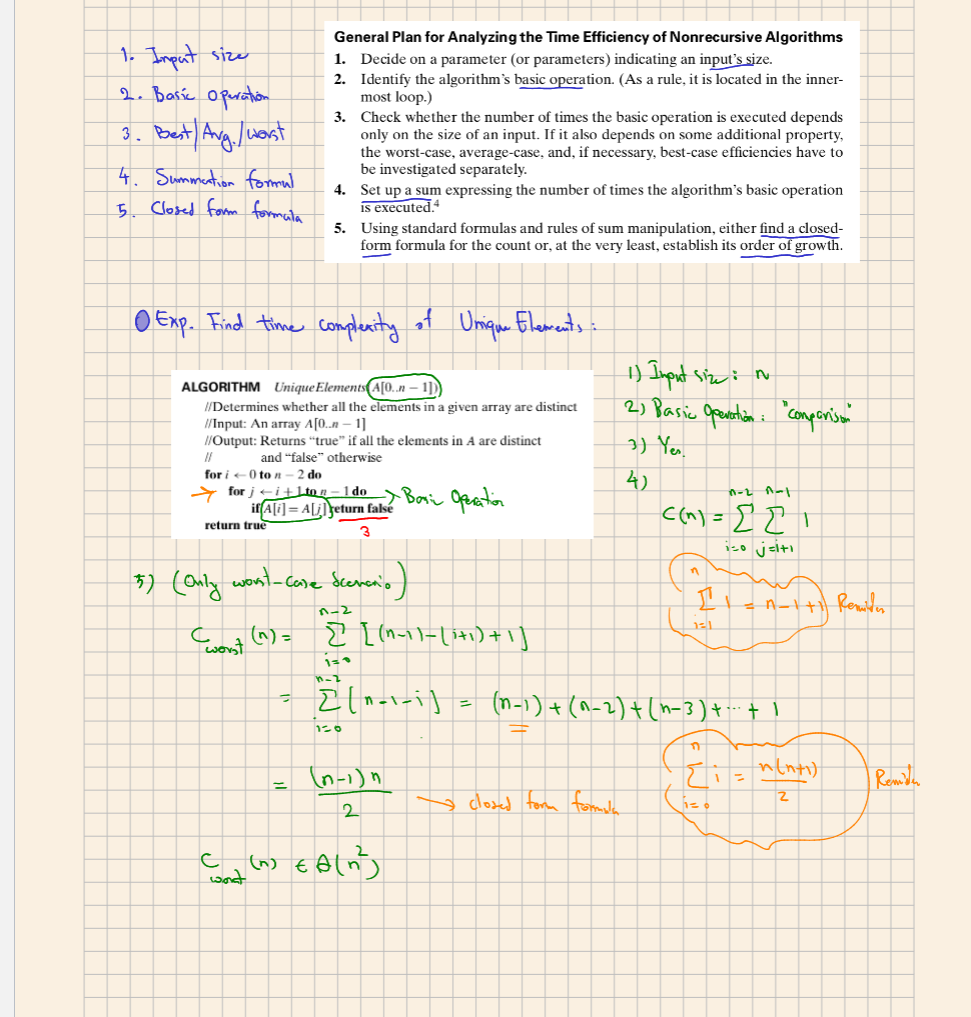 1. Input size
2. Basic operation
3. Best/Avg./Worst
4. Summation formul
5. Closed form formula
General Plan for Analyzing the Time Efficiency of Nonrecursive Algorithms
1. Decide on a parameter (or parameters) indicating an input's size.
2. Identify the algorithm's basic operation. (As a rule, it is located in the inner-
most loop.)
3. Check whether the number of times the basic operation is executed depends
only on the size of an input. If it also depends on some additional property,
the worst-case, average-case, and, if necessary, best-case efficiencies have to
be investigated separately.
4. Set up a sum expressing the number of times the algorithm's basic operation
is executed.⁴
5. Using standard formulas and rules of sum manipulation, either find a closed-
form formula for the count or, at the very least, establish its order of growth.
Exp. Find time complexity of Unique Elements:
ALGORITHM UniqueElements(A[0..n − 1])
//Determines whether all the elements in a given array are distinct
//Input: An array A[0..n − 1]
//Output: Returns “true” if all the elements in A are distinct
// and “false” otherwise
for i ← 0 to n − 2 do
for j ← i + 1 to n − 1 do
if A[i] = A[j] return false
return true
→ Basic Operation
3
1) Input size: n
2) Basic Operation: "comparison"
3) Yes.
4)
C(n) = Σ_{i=0}^{n-2} Σ_{j=i+1}^{n-1} 1
Σ_{i=1}^{n} 1 = n-1+1
5) (Only worst-case Scenario)
C_worst(n) = Σ_{i=0}^{n-2} [(n-1)-(i+1)+1]
= Σ_{i=0}^{n-2} [n-1-i] = (n-1)+(n-2)+(n-3)+...+1
Σ_{i=0}^{n} i = n(n+1)/2
= (n-1)n/2 → closed form formula
C_worst(n) ∈ Θ(n²)